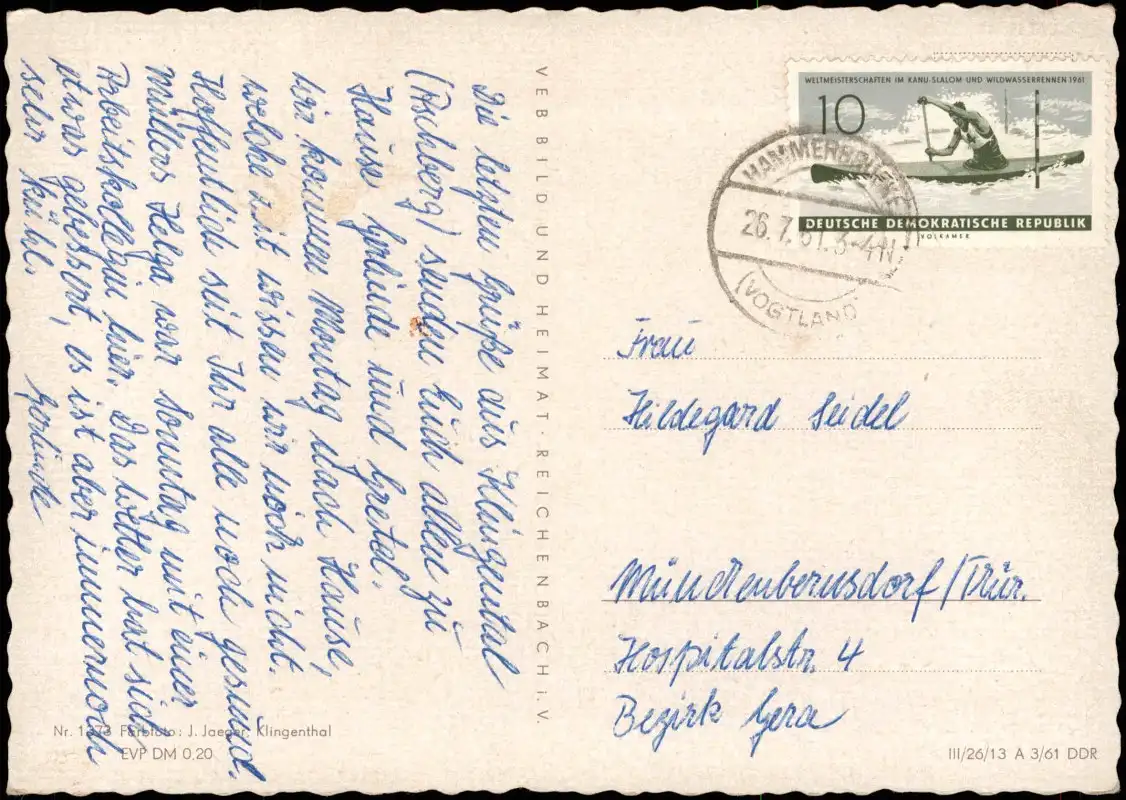 Die letzten Grüße aus Klingental
(Aschberg) senden Euch allen zu
Hause Gerlinde und Gretel.
Wir kommen Montag nach Hause,
welche Zeit wissen wir noch nicht.
Hoffentlich seit Ihr alle noch gesund.
Müllers Helga war Sonntag mit einer
Arbeitskollegin hier. Das Wetter hat sich
etwas gebessert, es ist aber immernoch
sehr kühl.
Gerlinde
VEB BILD UND HEIMAT · REICHENBACH i. V.
WELTMEISTERSCHAFTEN IM KANU-SLALOM UND WILDWASSERRENNEN 1961
10
DEUTSCHE DEMOKRATISCHE REPUBLIK
VOLKAMER
HAMMERBRÜCKE
26.7.61. 3-4N
(VOGTLAND)
Frau
Hildegard Seidel
Münchenbernsdorf/Thür.
Hospitalstr. 4
Bezirk Gera
Nr. 1373 Farbfoto: J. Jaeger, Klingenthal
EVP DM 0,20
III/26/13 A 3/61 DDR